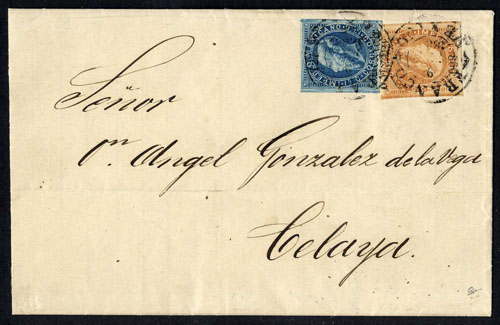 FRANCO
Señor
Dn. Angel Gonzalez de la Vega
Celaya.